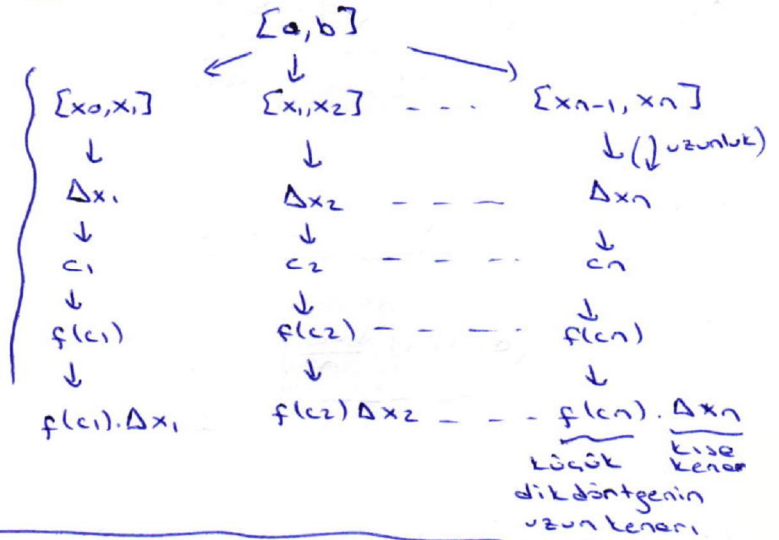 [a,b]
[x0,x1] [x1,x2] - - - [xn-1, xn]
↓ ↓ ↓ (↓ uzunluk)
Δx1 Δx2 - - - Δxn
↓ ↓ ↓
c1 c2 - - - - cn
↓ ↓ ↓
f(c1) f(c2) - - - - f(cn)
↓ ↓ ↓
f(c1).Δx1 f(c2)Δx2 - - - f(cn) . Δxn
küçük kısa
dikdörtgenin kenar
uzun kenarı